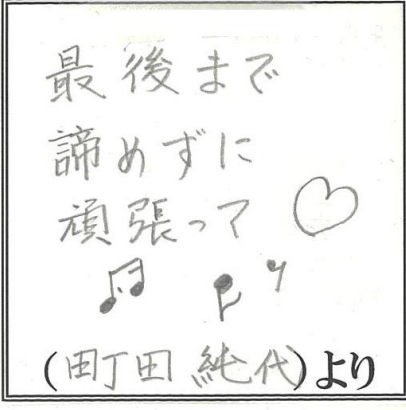 最後まで
諦めずに
頑張って
(町田 純代)より